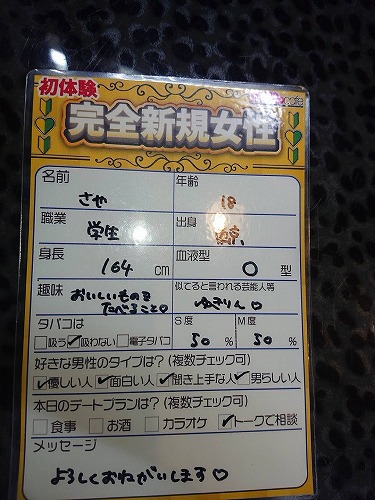 初体験
完全新規女性
名前
さや
年齢
18
職業
学生
出身
身長
164 cm
血液型
O 型
趣味
おいしいものを
たべること♡
似てると言われる芸能人等
ゆきりん♡
タバコは
吸う 吸わない 電子タバコ
S度
50 %
M度
50 %
好きな男性のタイプは?(複数チェック可)
優しい人 面白い人 聞き上手な人 男らしい人
本日のデートプランは?(複数チェック可)
食事 お酒 カラオケ トークで相談
メッセージ
よろしくおねがいします♡